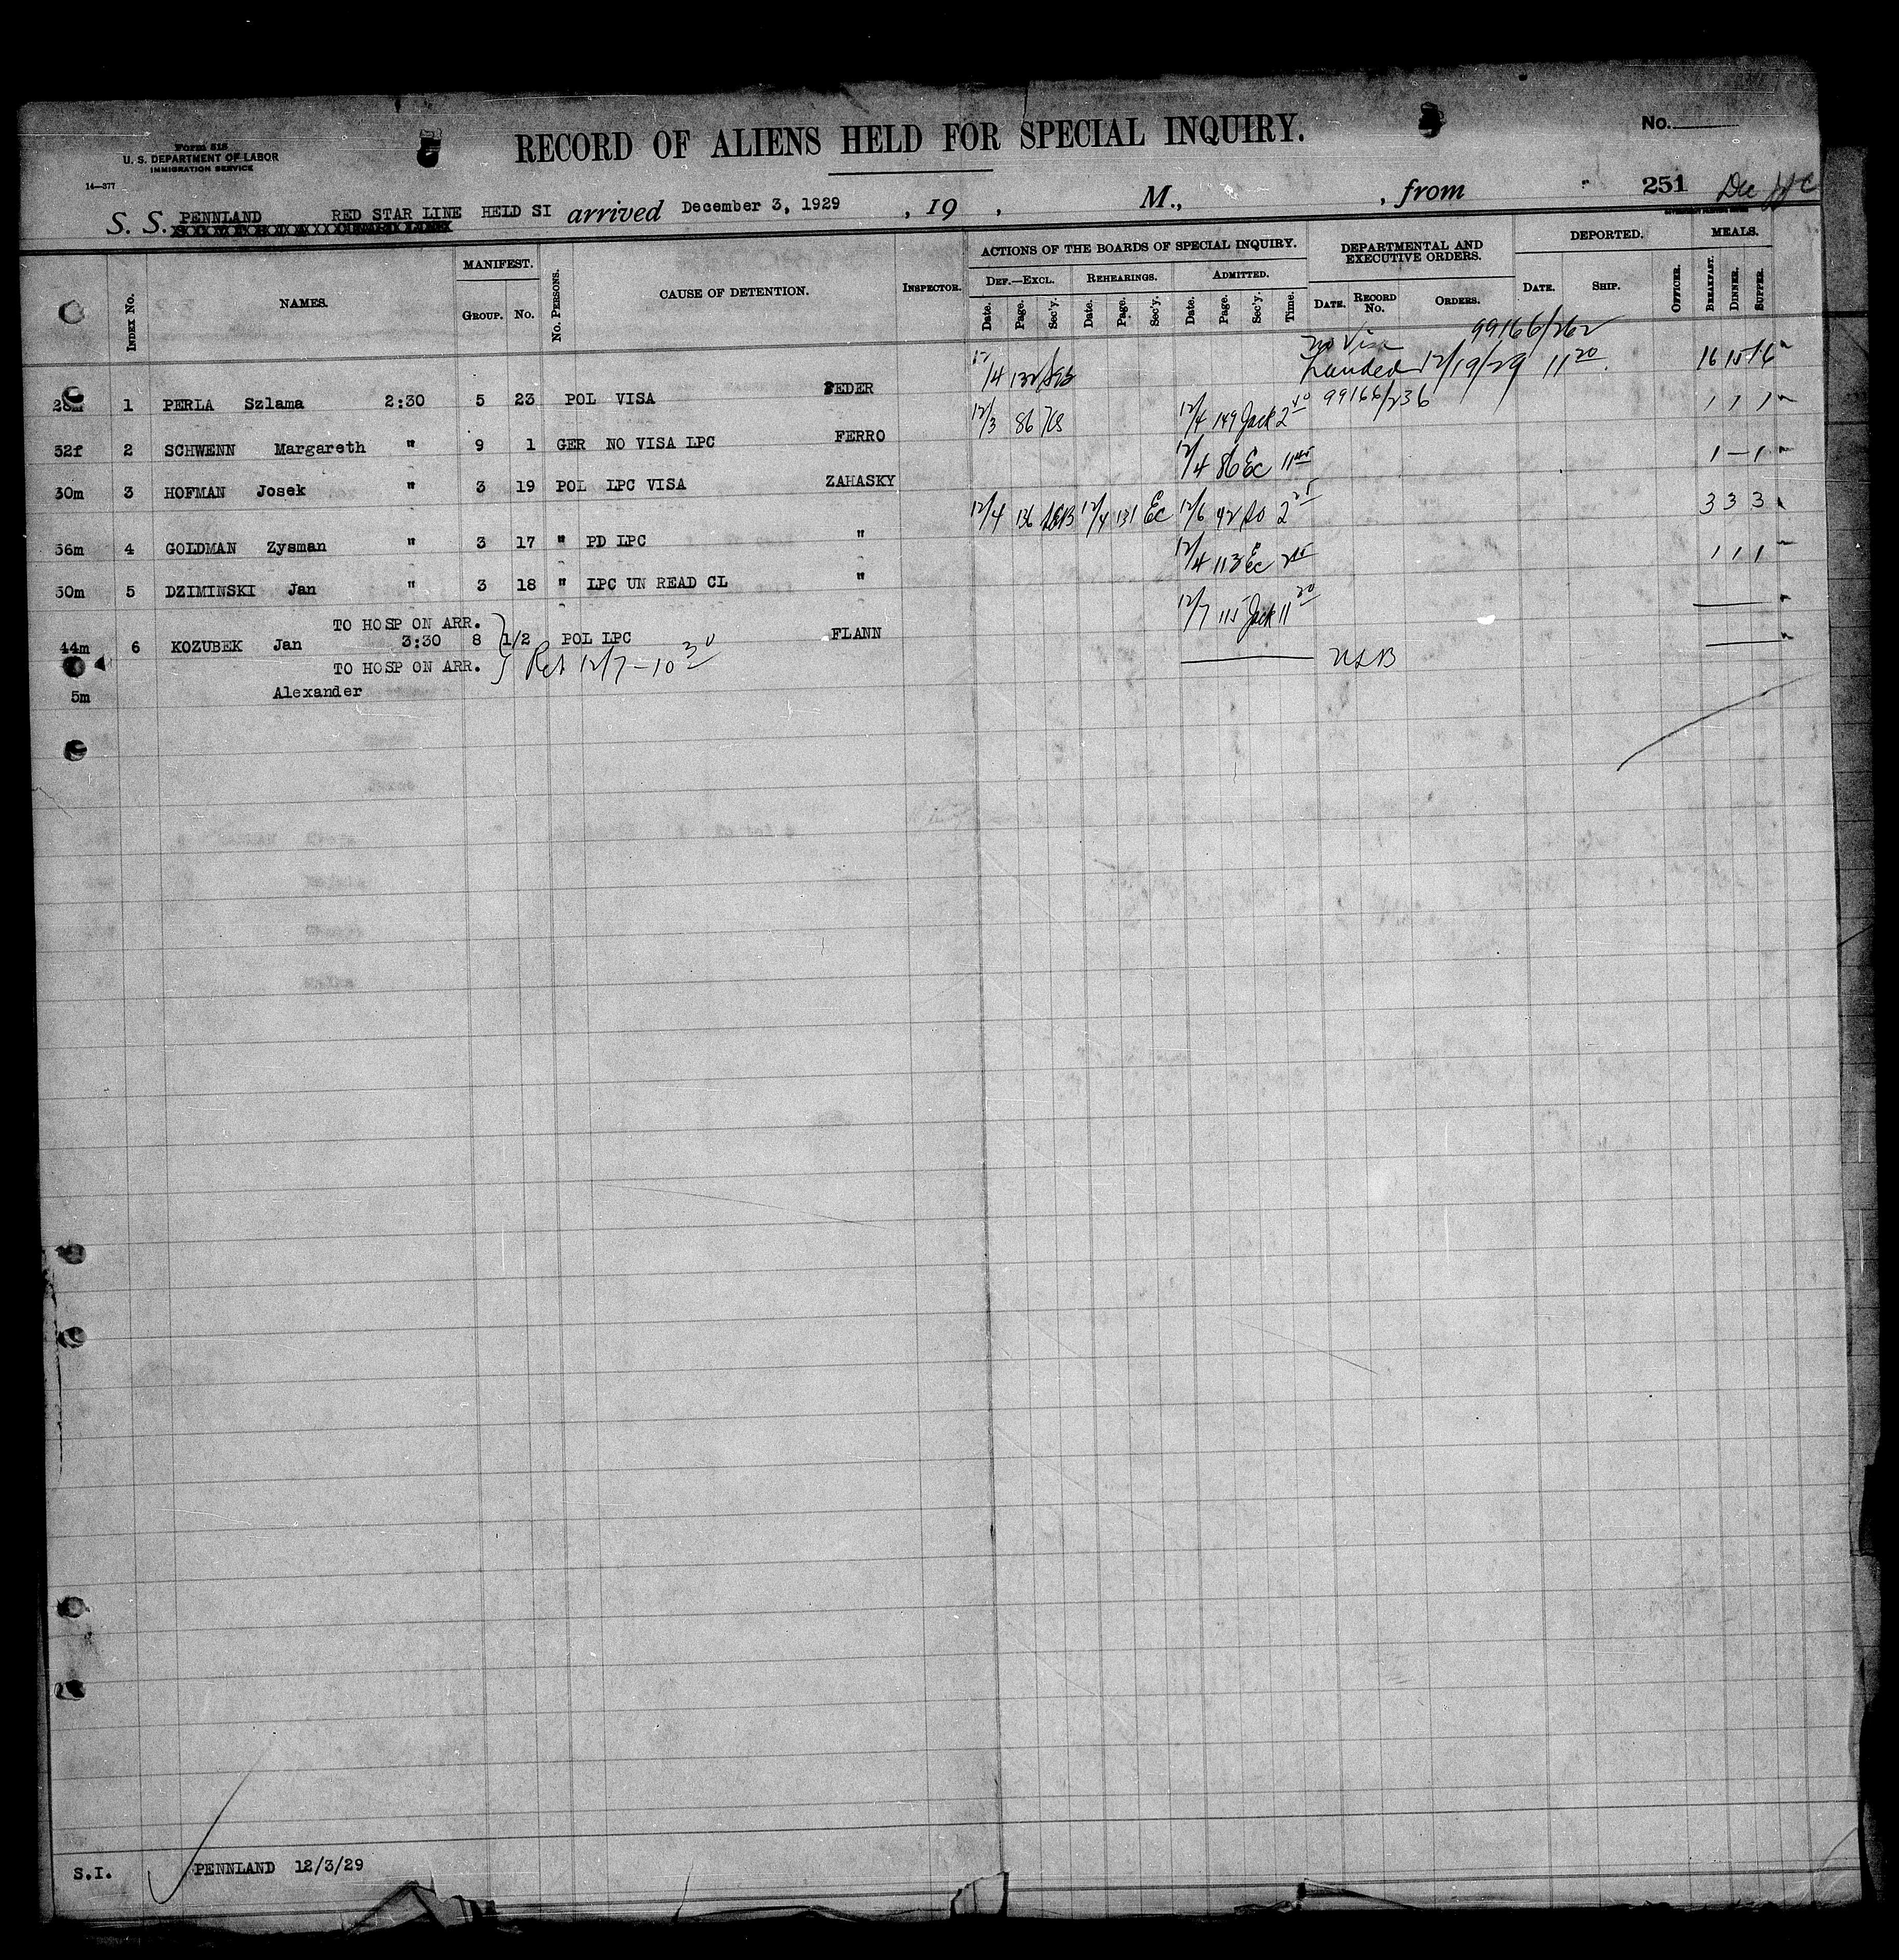 Form 518
U. S. DEPARTMENT OF LABOR
IMMIGRATION SERVICE
14—377
RECORD OF ALIENS HELD FOR SPECIAL INQUIRY.
No.
251
S. S. PENNLAND RED STAR LINE HELD SI arrived December 3, 1929, 19 , M., , from
INDEX No.
NAMES.
MANIFEST.
GROUP. No.
No. PERSONS.
CAUSE OF DETENTION.
INSPECTOR.
ACTIONS OF THE BOARDS OF SPECIAL INQUIRY.
DEF.—EXCL. REHEARINGS. ADMITTED.
Date. Page. Sec'y. Date. Page. Sec'y. Date. Page. Sec'y. Time.
DEPARTMENTAL AND EXECUTIVE ORDERS.
DATE. RECORD No. ORDERS.
DEPORTED.
DATE. SHIP. OFFICER.
MEALS.
BREAKFAST. DINNER. SUPPER.
99166/262
no Visa
1 PERLA Szlama 2:30 5 23 POL VISA FEDER 12/4 132 Landed 12/19/29 11 20 16 15 16
99166/236
32f 2 SCHWENN Margareth " 9 1 GER NO VISA LPC FERRO 12/3 86 12/4 149 Jack 2 40 1 1 1
30m 3 HOFMAN Josek " 3 19 POL LPC VISA ZAHASKY 12/4 86 EC 11 45 1 — 1
36m 4 GOLDMAN Zysman " 3 17 " PD LPC " 12/4 136 12/4 131 EC 12/6 42 2 25 3 3 3
30m 5 DZIMINSKI Jan " 3 18 " LPC UN READ CL " 12/4 113 EC 2 15 1 1 1
TO HOSP ON ARR.
44m 6 KOZUBEK Jan 3:30 8 1/2 POL LPC FLANN 12/7 115 Jack 11 20
TO HOSP ON ARR. Ret 12/7 – 10 30
5m Alexander
S.I. PENNLAND 12/3/29